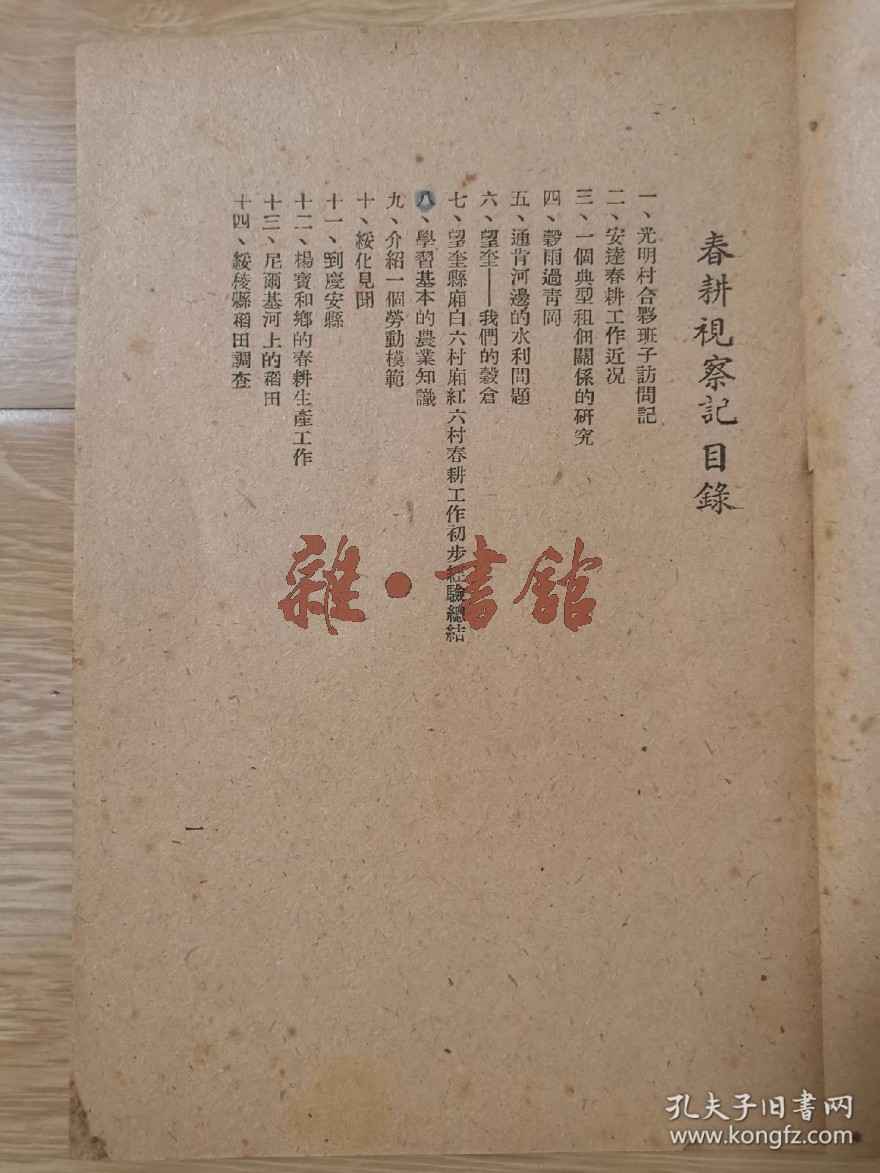 春耕視察記目錄
一、光明村合夥班子訪問記
二、安達春耕工作近况
三、一個典型租佃關係的研究
四、穀雨過青岡
五、通肯河邊的水利問題
六、望奎——我們的穀倉
七、望奎縣廂白六村廂紅六村春耕工作初步經驗總結
八、學習基本的農業知識
九、介紹一個勞動模範
十、綏化見聞
十一、到慶安縣
十二、楊寶和鄉的春耕生產工作
十三、尼爾基河上的稻田
十四、綏稜縣稻田調查
一
雜·書館
孔夫子旧書网
www.kongfz.com